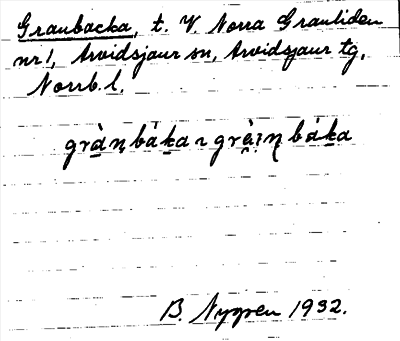 Granbacka, t. V. Norra Granliden
nr 1, Arvidsjaur sn, Arvidsjaur tg,
Norrb. l.
gràn̥báka ~ grài̯n̥báka
B. Nygren 1932.